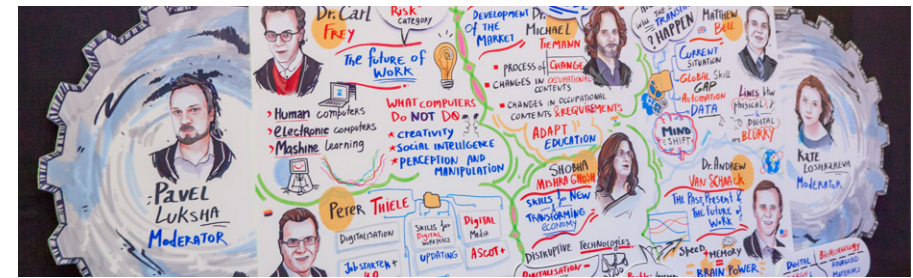 PAVEL
LUKSHA
MODERATOR
Dr. CARL
FREY
RISK
CATEGORY
The future of
WORK
Human computers
electronic computers
Mashine learning
WHAT COMPUTERS
DO NOT DO
CREATIVITY
SOCIAL INTELLIGENCE
PERCEPTION AND
MANIPULATION
PETER THIELE
DIGITALISATION
JOBSTARTER+
SKILLS for
DIGITAL
WORKPLACE
UPDATING
DIGITAL
Media
ASCOT+
DEVELOPMENT
OF THE
MARKET
Dr.
MICHAEL
TIEMANN
PROCESS of CHANGE
CHANGES IN OCCUPATIONAL
CONTENTS
CHANGES IN OCCUPATIONAL
CONTENTS & REQUIREMENTS
ADAPT
EDUCATION
SHOBHA
MISHRA GHOSH
SKILLS for NEW
TRANSFORMING
ECONOMY
DISRUPTIVE Technologies
DIGITALISATION =
? HAPPEN
MATTHEW
BELL
CURRENT
SITUATION
GLOBAL Skill
GAP
Automation
DATA
LINES btw
physical
& DIGITAL
BLURRY
MIND
SHIFT
Dr. ANDREW
VAN SCHAACK
THE PAST, PRESENT &
THE FUTURE of
WORK
Speed
+ MEMORY
= BRAIN POWER
KATE
LOSHKAREVA
MODERATOR
DIGITAL
BIOTECHNOLOGY
ADVANCED